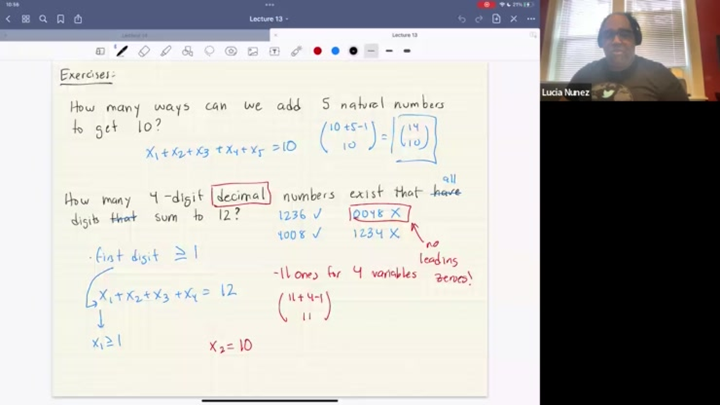 10:56
Lecture 13
21%
Lecture 14
Lecture 13
Exercises:
How many ways can we add 5 natural numbers
to get 10?
x1+x2+x3+x4+x5=10
(10+5-1 10) = (14 10)
How many 4-digit decimal numbers exist that have all
digits that sum to 12?
1236 ✓ 0048 X
4008 ✓ 1234 X
no leading zeroes!
· first digit ≥ 1
x1+x2+x3+x4= 12
x1≥1
-11 ones for 4 variables
(11+4-1 11)
x2=10
Lucia Nunez